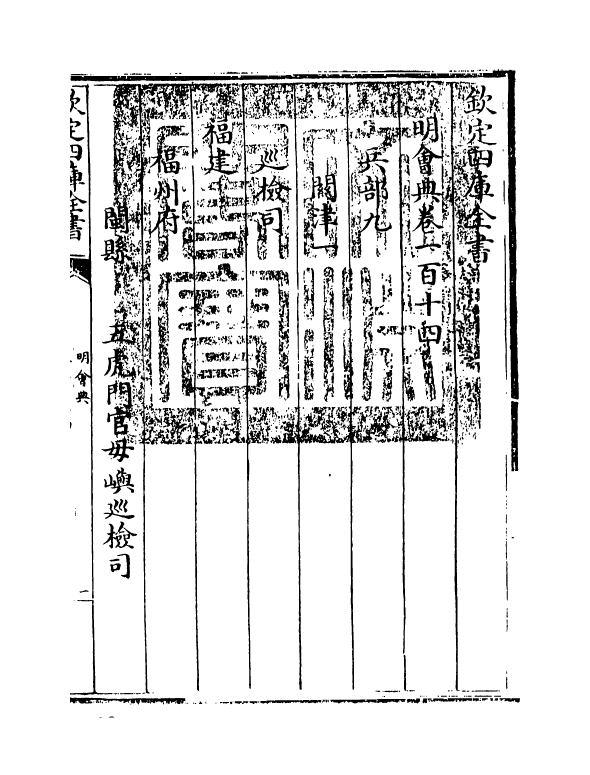 欽定四庫全書
明會典卷一百十四
兵部九
關津一
巡檢司
福建
福州府
閩縣 五虎門官母嶼巡檢司
欽定四庫全書
明會典
一